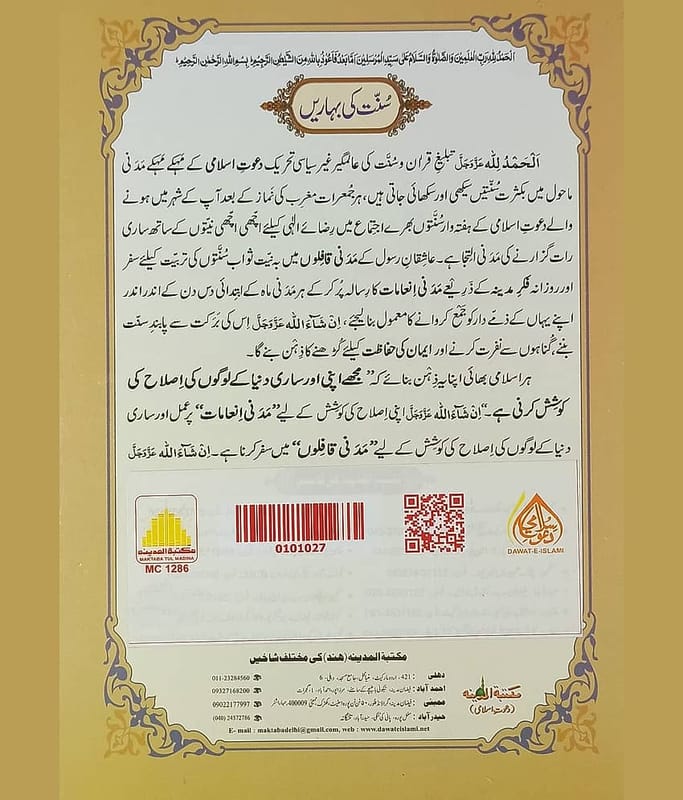 اَلْحَمْدُ لِلّٰهِ رَبِّ الْعٰلَمِیْنَ وَالصَّلٰوةُ وَالسَّلَامُ عَلٰی سَیِّدِ الْمُرْسَلِیْنَ اَمَّا بَعْدُ فَاَعُوْذُ بِاللّٰهِ مِنَ الشَّیْطٰنِ الرَّجِیْمِ بِسْمِ اللّٰهِ الرَّحْمٰنِ الرَّحِیْمِ
سُنّت کی بہاریں
اَلْحَمْدُ لِلّٰه عَزَّوَجَلَّ تبلیغِ قرآن و سُنَّت کی عالمگیر غیر سیاسی تحریک دعوتِ اسلامی کے مہکے مہکے مَدَنی
ماحول میں بکثرت سُنّتیں سیکھی اور سکھائی جاتی ہیں، ہر جُمعرات مغرِب کی نَماز کے بعد آپ کے شہر میں ہونے
والے دعوتِ اسلامی کے ہفتہ وار سُنّتوں بھرے اجتماع میں رِضائے الٰہی کیلئے اچّھی اچّھی نیّتوں کے ساتھ ساری
رات گزارنے کی مَدَنی التجا ہے۔ عاشِقانِ رسول کے مَدَنی قافِلوں میں بہ نیّتِ ثواب سُنَّتوں کی تربیت کیلئے سفر
اور روزانہ فکرِ مدینہ کے ذَرِیعے مَدَنی اِنعامات کا رسالہ پُر کرکے ہر مَدَنی ماہ کے ابتدائی دس دن کے اندر اندر
اپنے یہاں کے ذمّے دار کو جَمع کروانے کا معمول بنا لیجئے، اِنْ شَآءَ اللّٰه عَزَّوَجَلَّ اِس کی بَرَکت سے پابندِ سنّت
بننے، گُناہوں سے نفرت کرنے اور ایمان کی حفاظت کیلئے کُڑھنے کا ذِہْن بنے گا۔
ہر اسلامی بھائی اپنا یہ ذِہْن بنائے کہ ”مجھے اپنی اور ساری دنیا کے لوگوں کی اِصلاح کی
کوشِش کرنی ہے۔“ اِنْ شَآءَ اللّٰه عَزَّوَجَلَّ اپنی اِصلاح کی کوشش کے لیے ”مَدَنی اِنعامات“ پر عمل اور ساری
دنیا کے لوگوں کی اِصلاح کی کوشش کے لیے ”مَدَنی قافِلوں“ میں سفر کرنا ہے۔ اِنْ شَآءَ اللّٰه عَزَّوَجَلَّ
دعوت اسلامی
DAWAT-E-ISLAMI
0101027
مکتبۃ المدینہ
MAKTABA TUL MADINA
MC 1286
مکتبۃ المدینہ (ہند) کی مختلف شاخیں
دہلی : 421، اردو مارکیٹ، مٹیا محل، جامع مسجد، دہلی۔6 011-23284560
احمد آباد : فیضان مدینہ، گجرات 09327168200
ممبئی : فیضان مدینہ، ممبئی 400009، مہاراشٹر 09022177997
حیدرآباد : مغل پورہ، پانی کی ٹنکی، حیدرآباد، تلنگانہ (040) 24572786
E- mail : maktabadelhi@gmail.com, web : www.dawateislami.net
مکتبۃ المدینہ
(دعوتِ اسلامی)